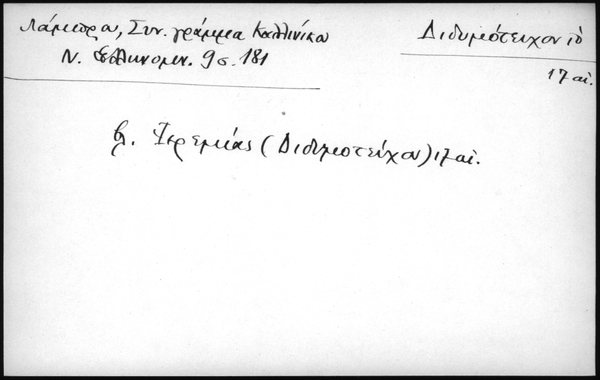 Λάμπρου, Συν. γράμμα Καλλινίκου
Ν. Ἑλληνομν. 9 σ. 181
Διδυμότειχον
17 αἰ.
βλ. Ἱερεμίας (Διδυμοτείχου) 17 αἰ.